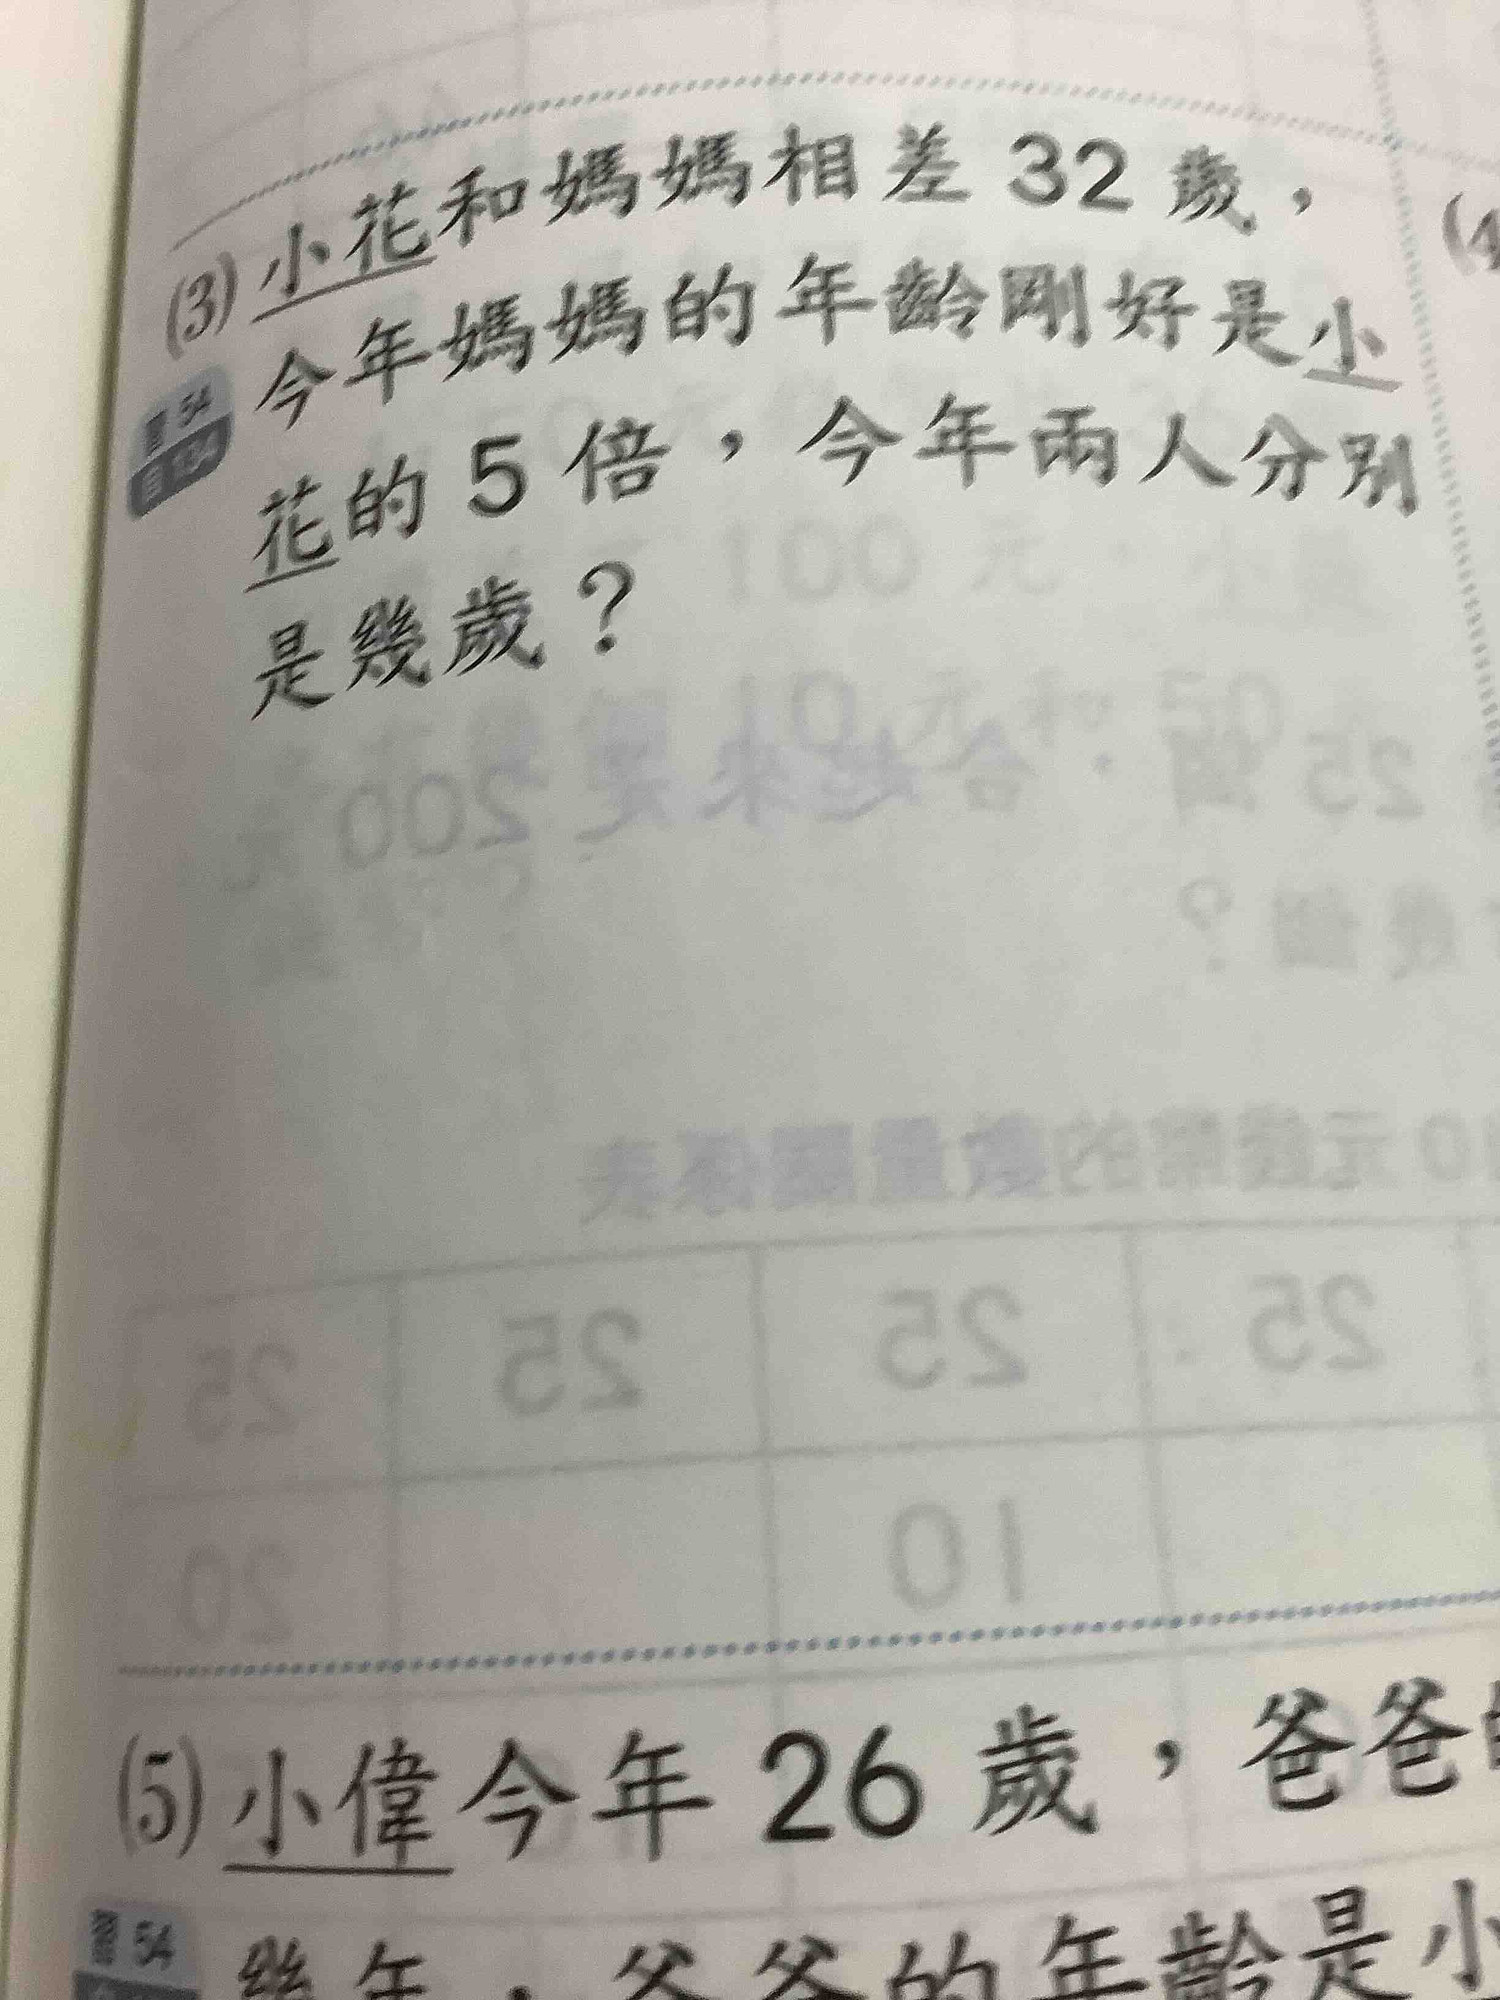 (3) 小花和媽媽相差 32 歲，
今年媽媽的年齡剛好是小
花的 5 倍，今年兩人分別
是幾歲？
習 54
(4
(5) 小偉今年 26 歲，爸爸的
習 54
幾年，爸爸的年齡是小